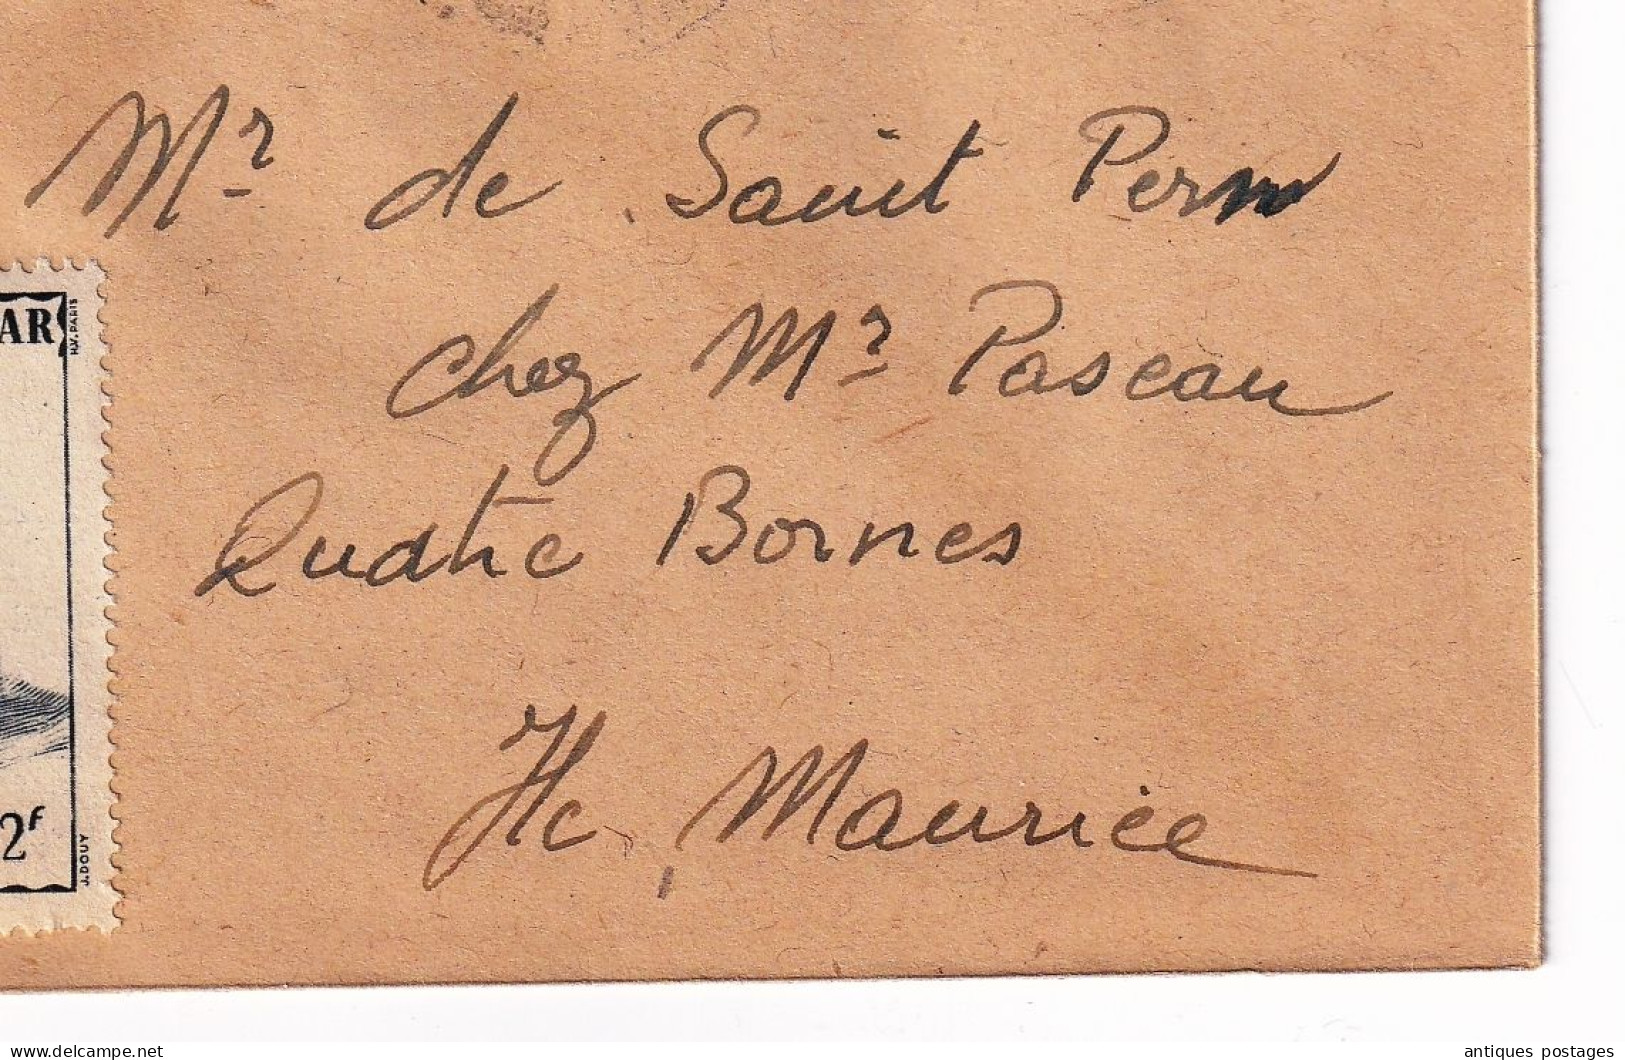 Mr de Saint Pern
AR
H.V. PARIS
chez Mr Paseau
Quatre Bornes
Ile Maurice
2F
J. DOUY
antiques postages